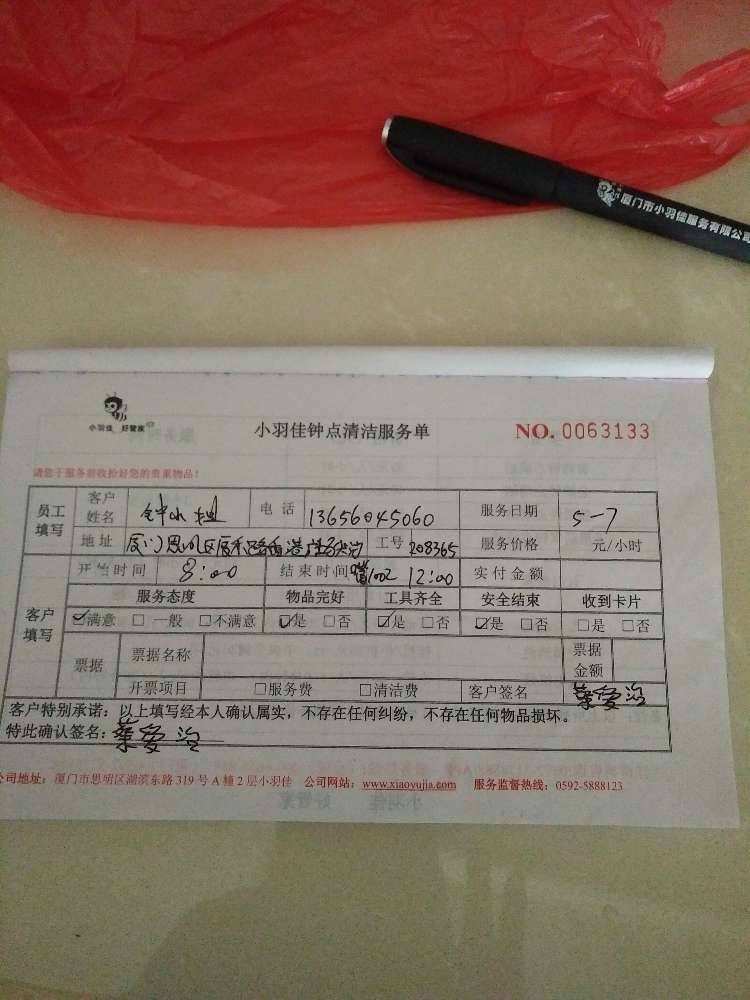 厦门市小羽佳服务有限公司
小羽佳 好管家
小羽佳钟点清洁服务单
NO. 0063133
请您于服务前收拾好您的贵重物品!
员工填写 客户姓名 电话 13656045060 服务日期 5-7
地址 工号 208365 服务价格 元/小时
客户填写 开始时间 8:00 结束时间 12:00 实付金额
服务态度 物品完好 工具齐全 安全结束 收到卡片
☑满意 □一般 □不满意 ☑是 □否 ☑是 □否 ☑是 □否 □是 □否
票据 票据名称 票据金额
开票项目 □服务费 □清洁费 客户签名 蔡爱治
客户特别承诺:以上填写经本人确认属实,不存在任何纠纷,不存在任何物品损坏。
特此确认签名:蔡爱治
公司地址:厦门市思明区湖滨东路319号A幢2层小羽佳 公司网站:www.xiaoyujia.com 服务监督热线:0592-5888123